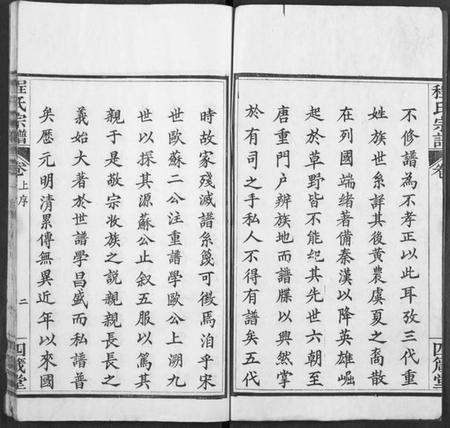 程氏宗譜
卷
四箴堂
不修譜為不孝正以此耳攷三代重
姓族世系詳其後黃農虞夏之裔散
在列國端緒著備秦漢以降英雄崛
起於草野皆不能紀其先世六朝至
唐重門戶辨族地而譜牒以興然掌
於有司之手私人不得有譜矣五代
時故家殘滅譜系篾可徵焉洎乎宋
世歐蘇二公注重譜學歐公上溯九
世以探其源蘇公止敘五服以篤其
親于是敬宗收族之說親親長長之
義始大著於世譜學昌盛而私譜普
矣歷元明清累傳無異近年以來國
程氏宗譜
卷上序
二
四箴堂